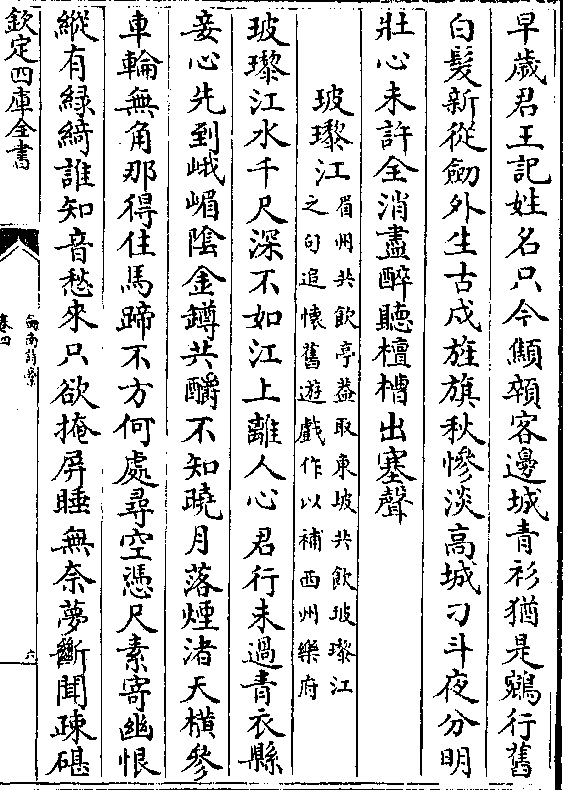 早歲君王記姓名只今顦顇客邊城青衫猶是鵷行舊
白髮新從劒外生古戍旌旗秋慘淡高城刁斗夜分明
壯心未許全消盡醉聽檀槽出塞聲
玻瓈江
眉州共飲亭葢取東坡共飲玻瓈江
之句追懷舊遊戲作以補西州樂府
玻瓈江水千尺深不如江上離人心君行未過青衣縣
妾心先到峨嵋陰金鐏共釂不知曉月落煙渚天橫參
車輪無角那得住馬蹄不方何處尋空憑尺素寄幽恨
縱有緑綺誰知音愁來只欲掩屏睡無奈夢斷聞疎碪
欽定四庫全書
劍南詩藁
卷四
六